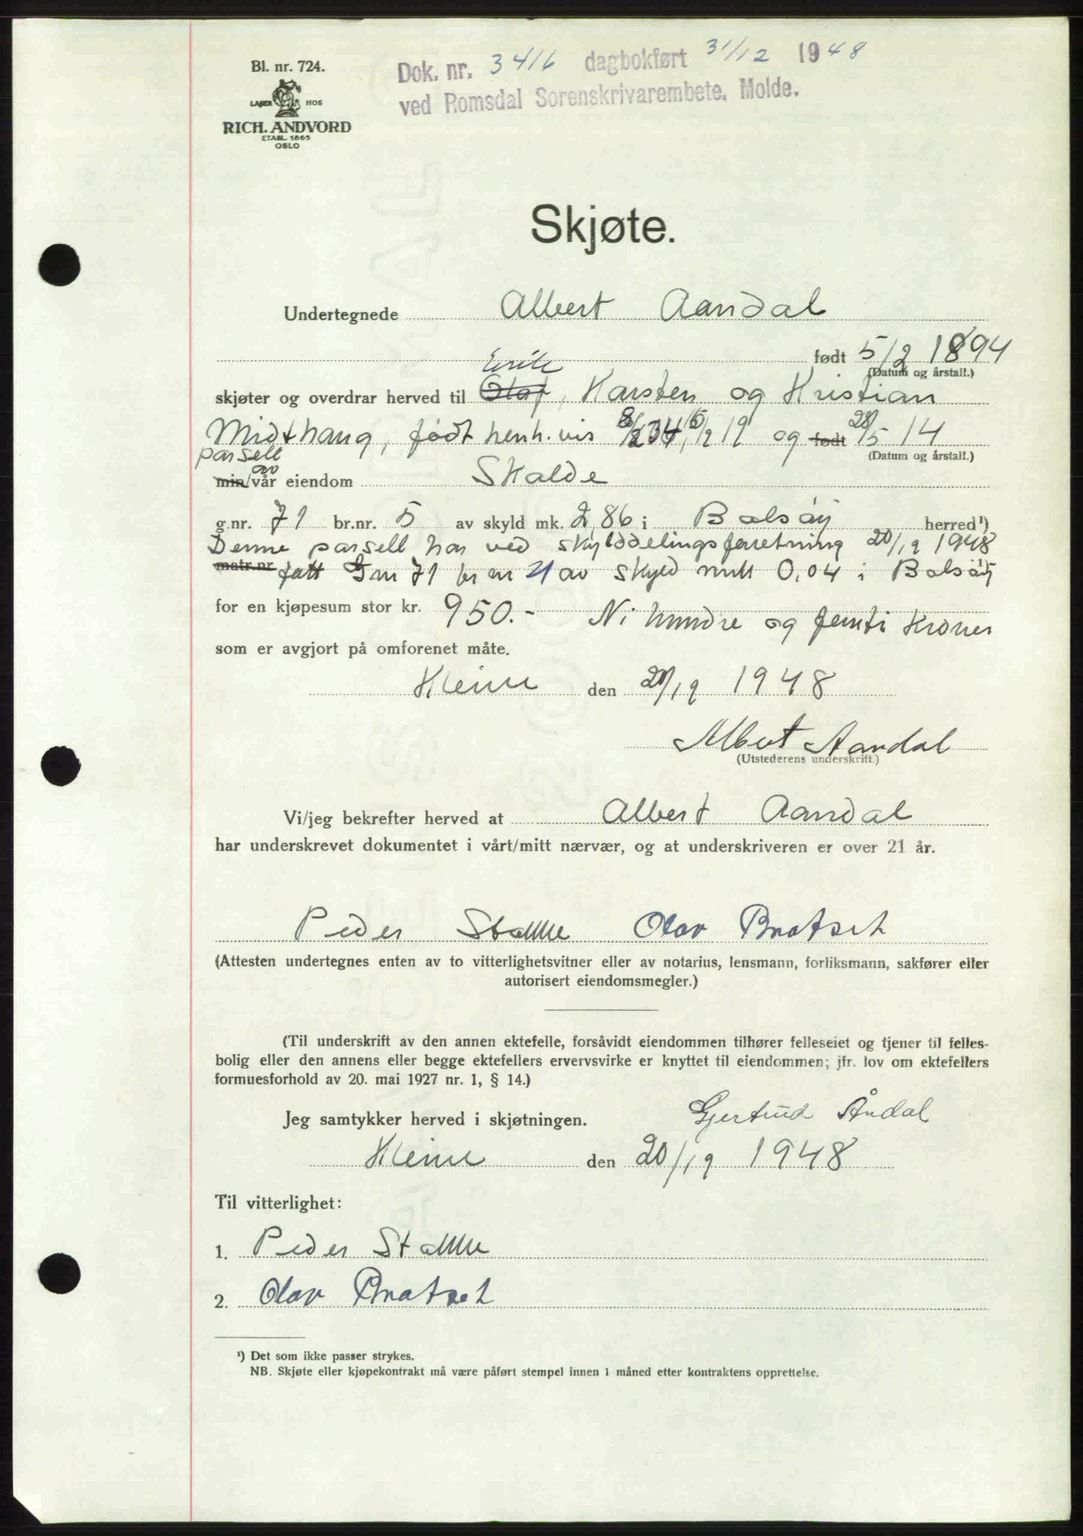 Bl. nr. 724.
LAGER HOS
RICH. ANDVORD
ETABL. 1865
OSLO
Dok. nr. 3416 dagbokført 31/12 1948
ved Romsdal Sorenskrivarembete, Molde.
Skjøte.
Undertegnede Albert Aandal
født 5/2 1894
(Datum og årstall.)
skjøter og overdrar herved til Olaf, Karsten og Kristian
Midthaug, født henh. vis og født 28/5 14
(Datum og årstall.)
parsell av
min/vår eiendom Skalde
g.nr. 71 br.nr. 5 av skyld mk. 2,86 i Bolsøy herred¹)
Denne parsell har ved skylddelingsforretning 20/12 1948
matr.nr fått Gnr 71 br nr 21 av skyld mrk 0,04 i Bolsøy
for en kjøpesum stor kr. 950.- Ni hundre og femti kroner
som er avgjort på omforenet måte.
Kleive den 20/12 1948
Albert Aandal
(Utstederens underskrift.)
Vi/jeg bekrefter herved at Albert Aandal
har underskrevet dokumentet i vårt/mitt nærvær, og at underskriveren er over 21 år.
Peder Olav
(Attesten undertegnes enten av to vitterlighetsvitner eller av notarius, lensmann, forliksmann, sakfører eller
autorisert eiendomsmegler.)
(Til underskrift av den annen ektefelle, forsåvidt eiendommen tilhører felleseiet og tjener til felles-
bolig eller den annens eller begge ektefellers ervervsvirke er knyttet til eiendommen; jfr. lov om ektefellers
formuesforhold av 20. mai 1927 nr. 1, § 14.)
Jeg samtykker herved i skjøtningen. Gjertrud Åndal
Kleive den 20/12 1948
Til vitterlighet:
1. Peder
2. Olav
¹) Det som ikke passer strykes.
NB. Skjøte eller kjøpekontrakt må være påført stempel innen 1 måned etter kontraktens opprettelse.